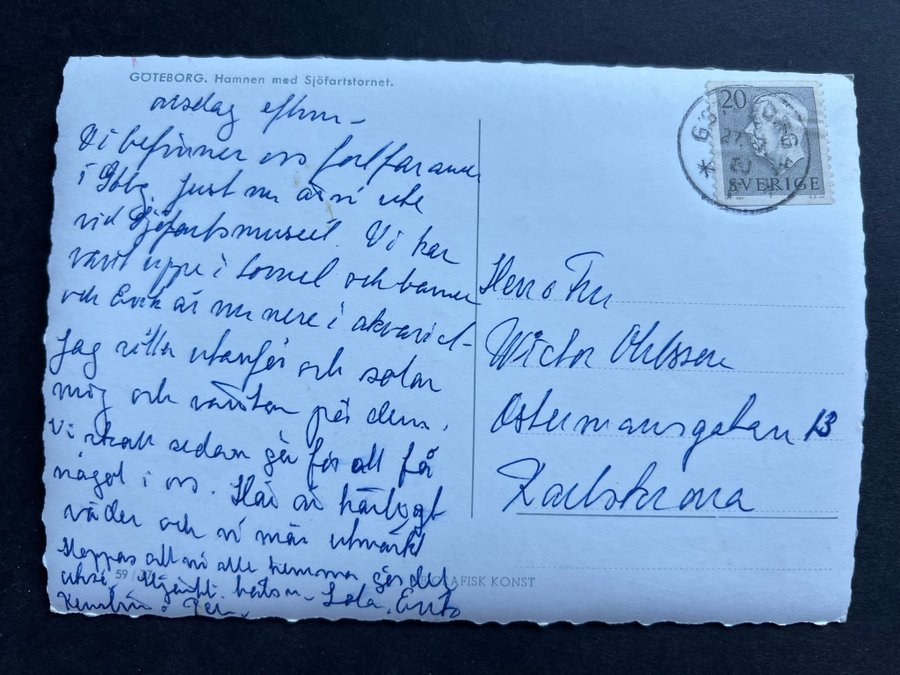 GÖTEBORG. Hamnen med Sjöfartstornet.
onsdag efterm
Vi befinner oss fortfarande
i Gbg. Just nu är vi ute
vid Sjöfartsmuseet. Vi har
varit uppe i tornet och barnen
och Erik är nu nere i akvariet
Jag sitter utanför och solar
mig och väntar på dem.
Vi skall sedan gå för att få
något i oss. Här är härligt
väder och vi mår utmärkt
Hoppas att ni alla hemma gör det
också. Hjärtl. hälsn
59/
GRAFISK KONST
20
SVERIGE
Herr o Fru
Wictor Ohlsson
Östermansgatan 13
Karlskrona